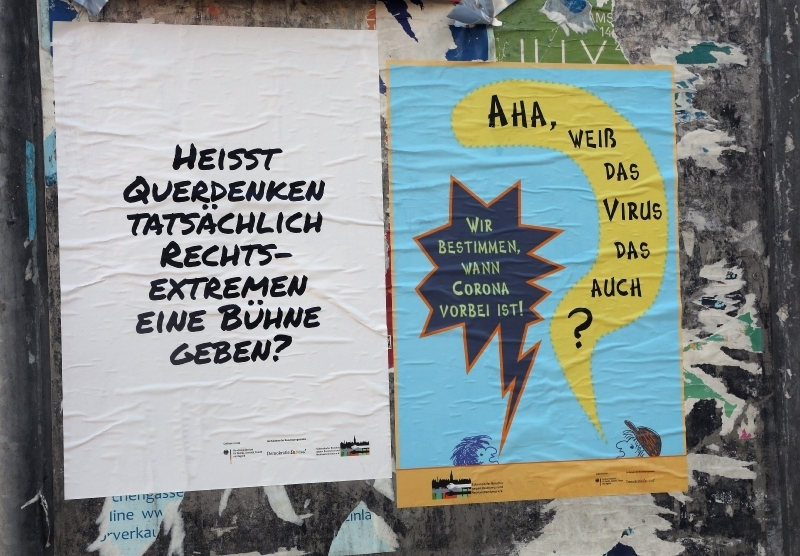 HEISST
QUERDENKEN
TATSÄCHLICH
RECHTS-
EXTREMEN
EINE BÜHNE
GEBEN?
AHA,
WEIß
DAS
VIRUS
DAS
AUCH
?
WIR
BESTIMMEN,
WANN
CORONA
VORBEI IST!
Demokratie leben!
chengasse
line ww
rverkau
inla